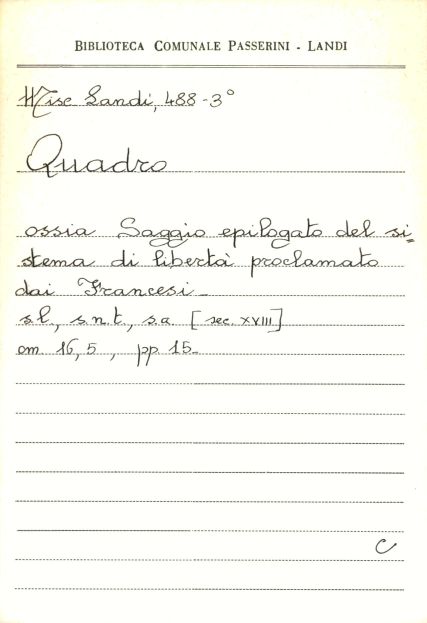 BIBLIOTECA COMUNALE PASSERINI - LANDI
Misc Landi, 488-3°
Quadro
ossia Saggio epilogato del si=
stema di libertà proclamato
dai Francesi_
s.l., s.n.t., s.a [sec. XVIII]
cm 16,5, pp. 15_
C